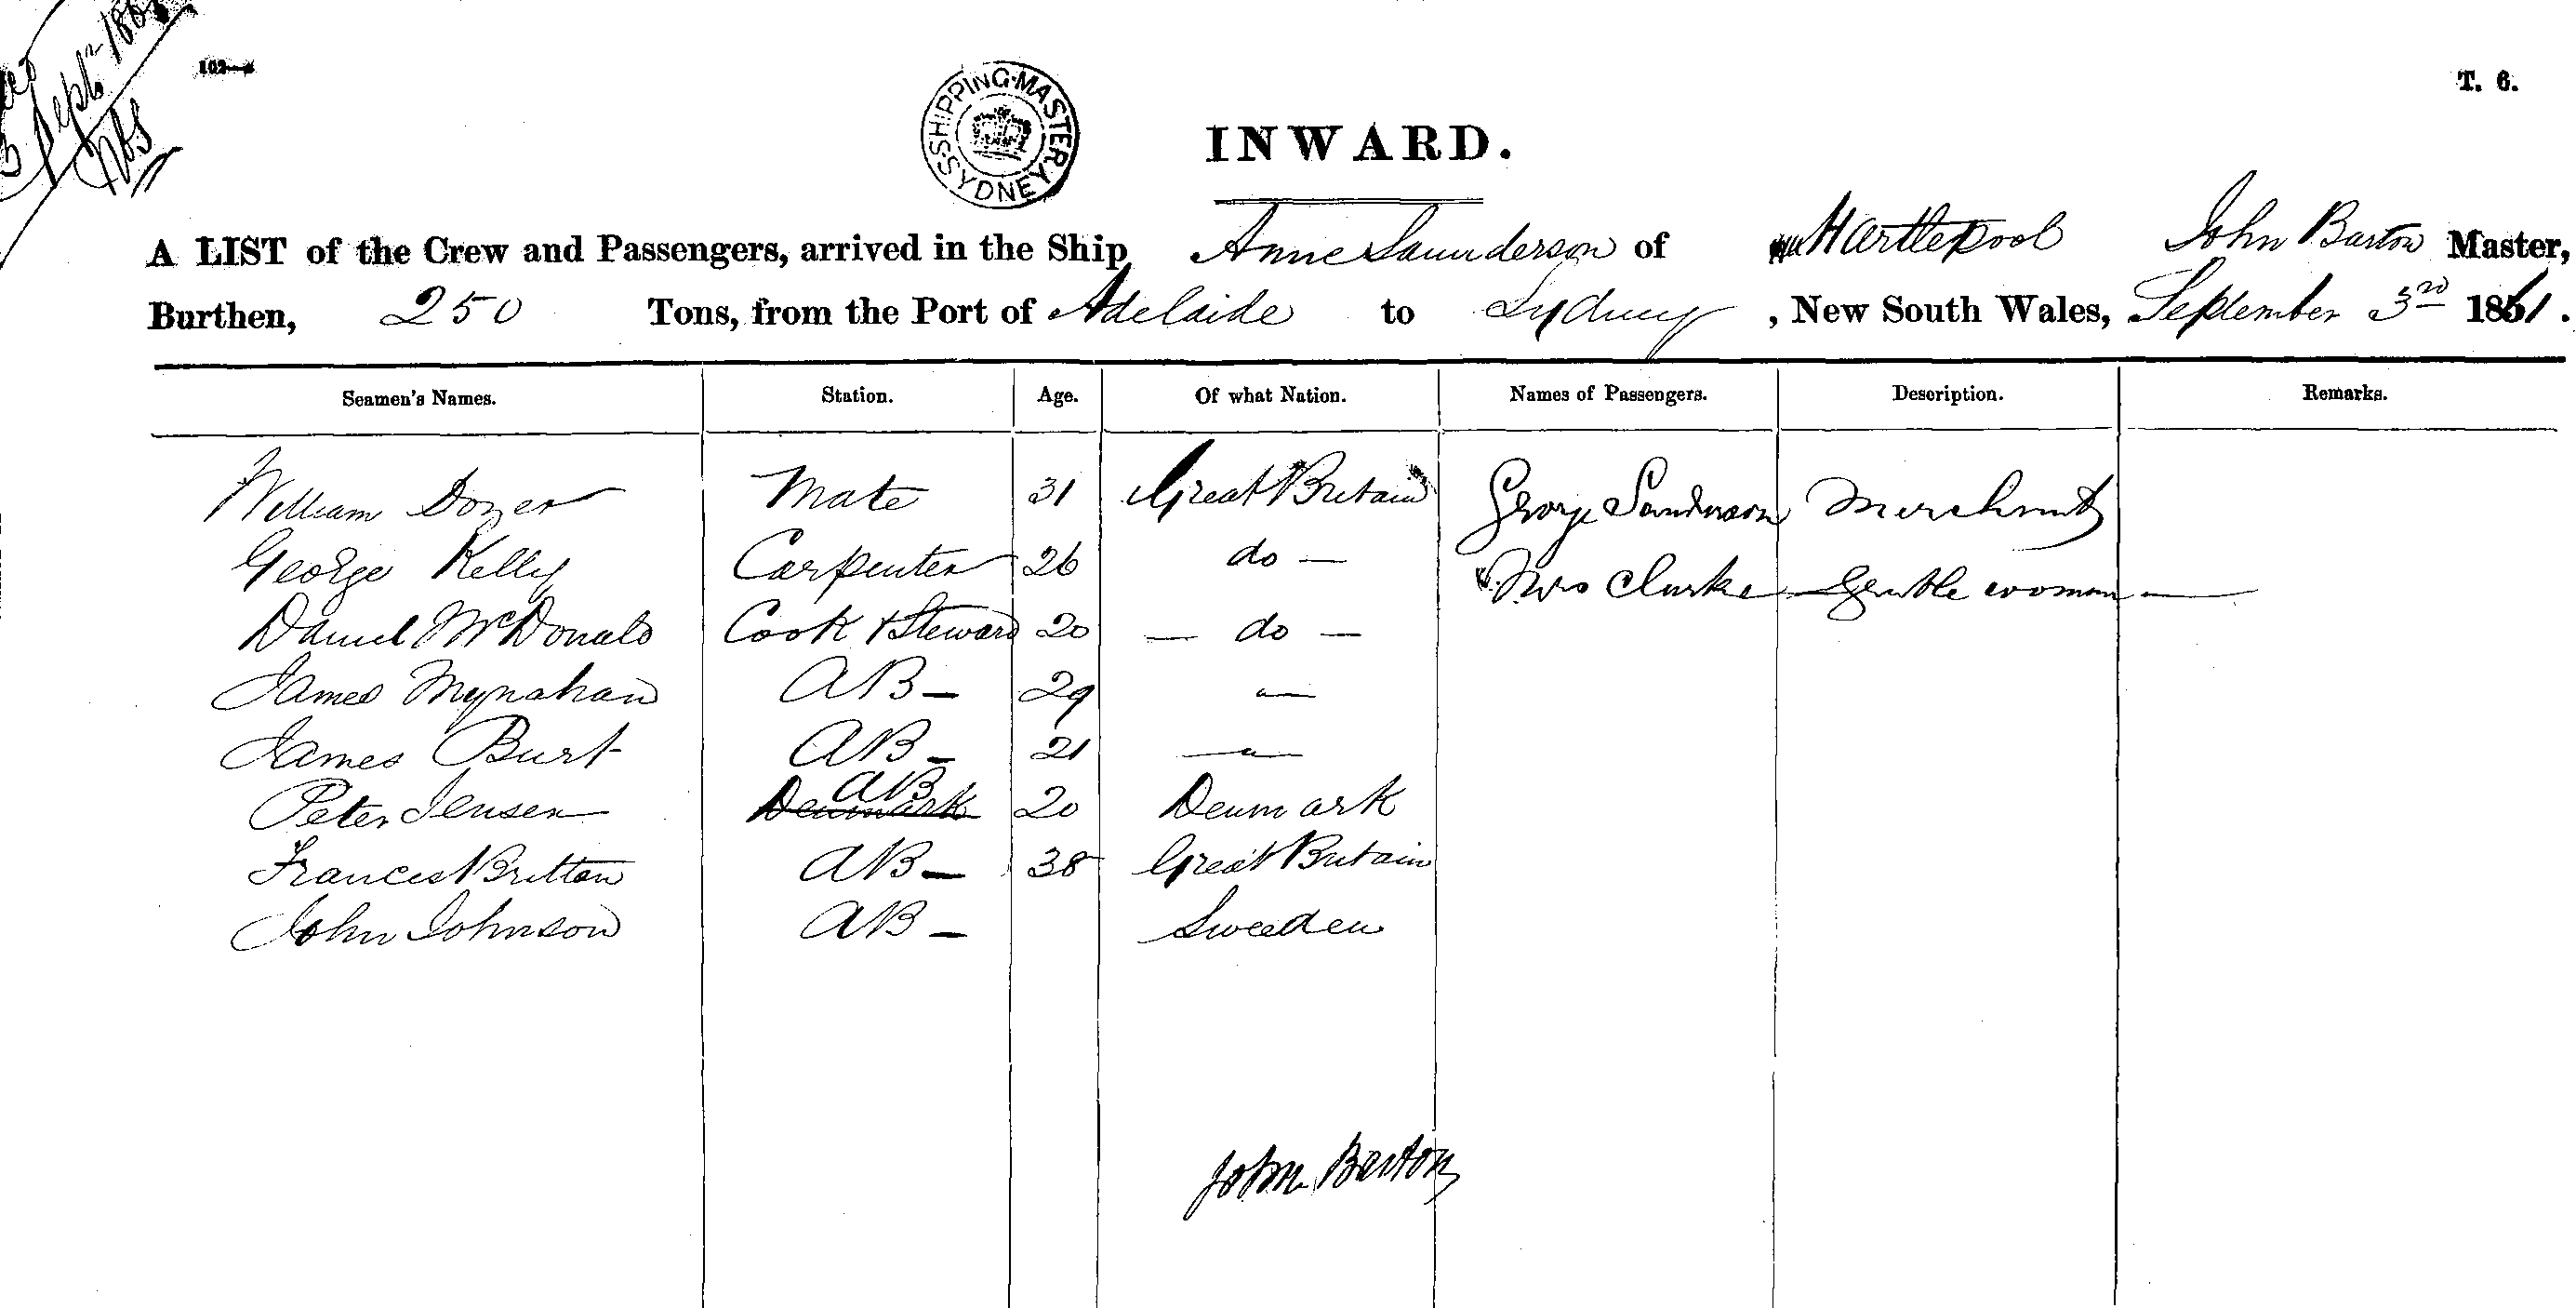 Septr 186
102—
T. 6.
SHIPPING MASTER SYDNEY
INWARD.
A LIST of the Crew and Passengers, arrived in the Ship Anne Saunderson of Hartlepool John Barton Master,
Burthen, 250 Tons, from the Port of Adelaide to Sydney, New South Wales, September 3rd 1861.
Seamen's Names. Station. Age. Of what Nation. Names of Passengers. Description. Remarks.
William Dozer Mate 31 Great Britain George Sanderson Merchant
George Kelly Carpenter 26 do — Mrs Clarke — Gentlewoman —
Daniel McDonald Cook & Steward 20 — do —
James Mynahan AB — 29 — " —
James Burt AB — 21 — " —
Peter Jensen Denmark AB 20 Denmark
Frances Britton AB — 38 Great Britain
John Johnson AB — Sweeden
John Barton